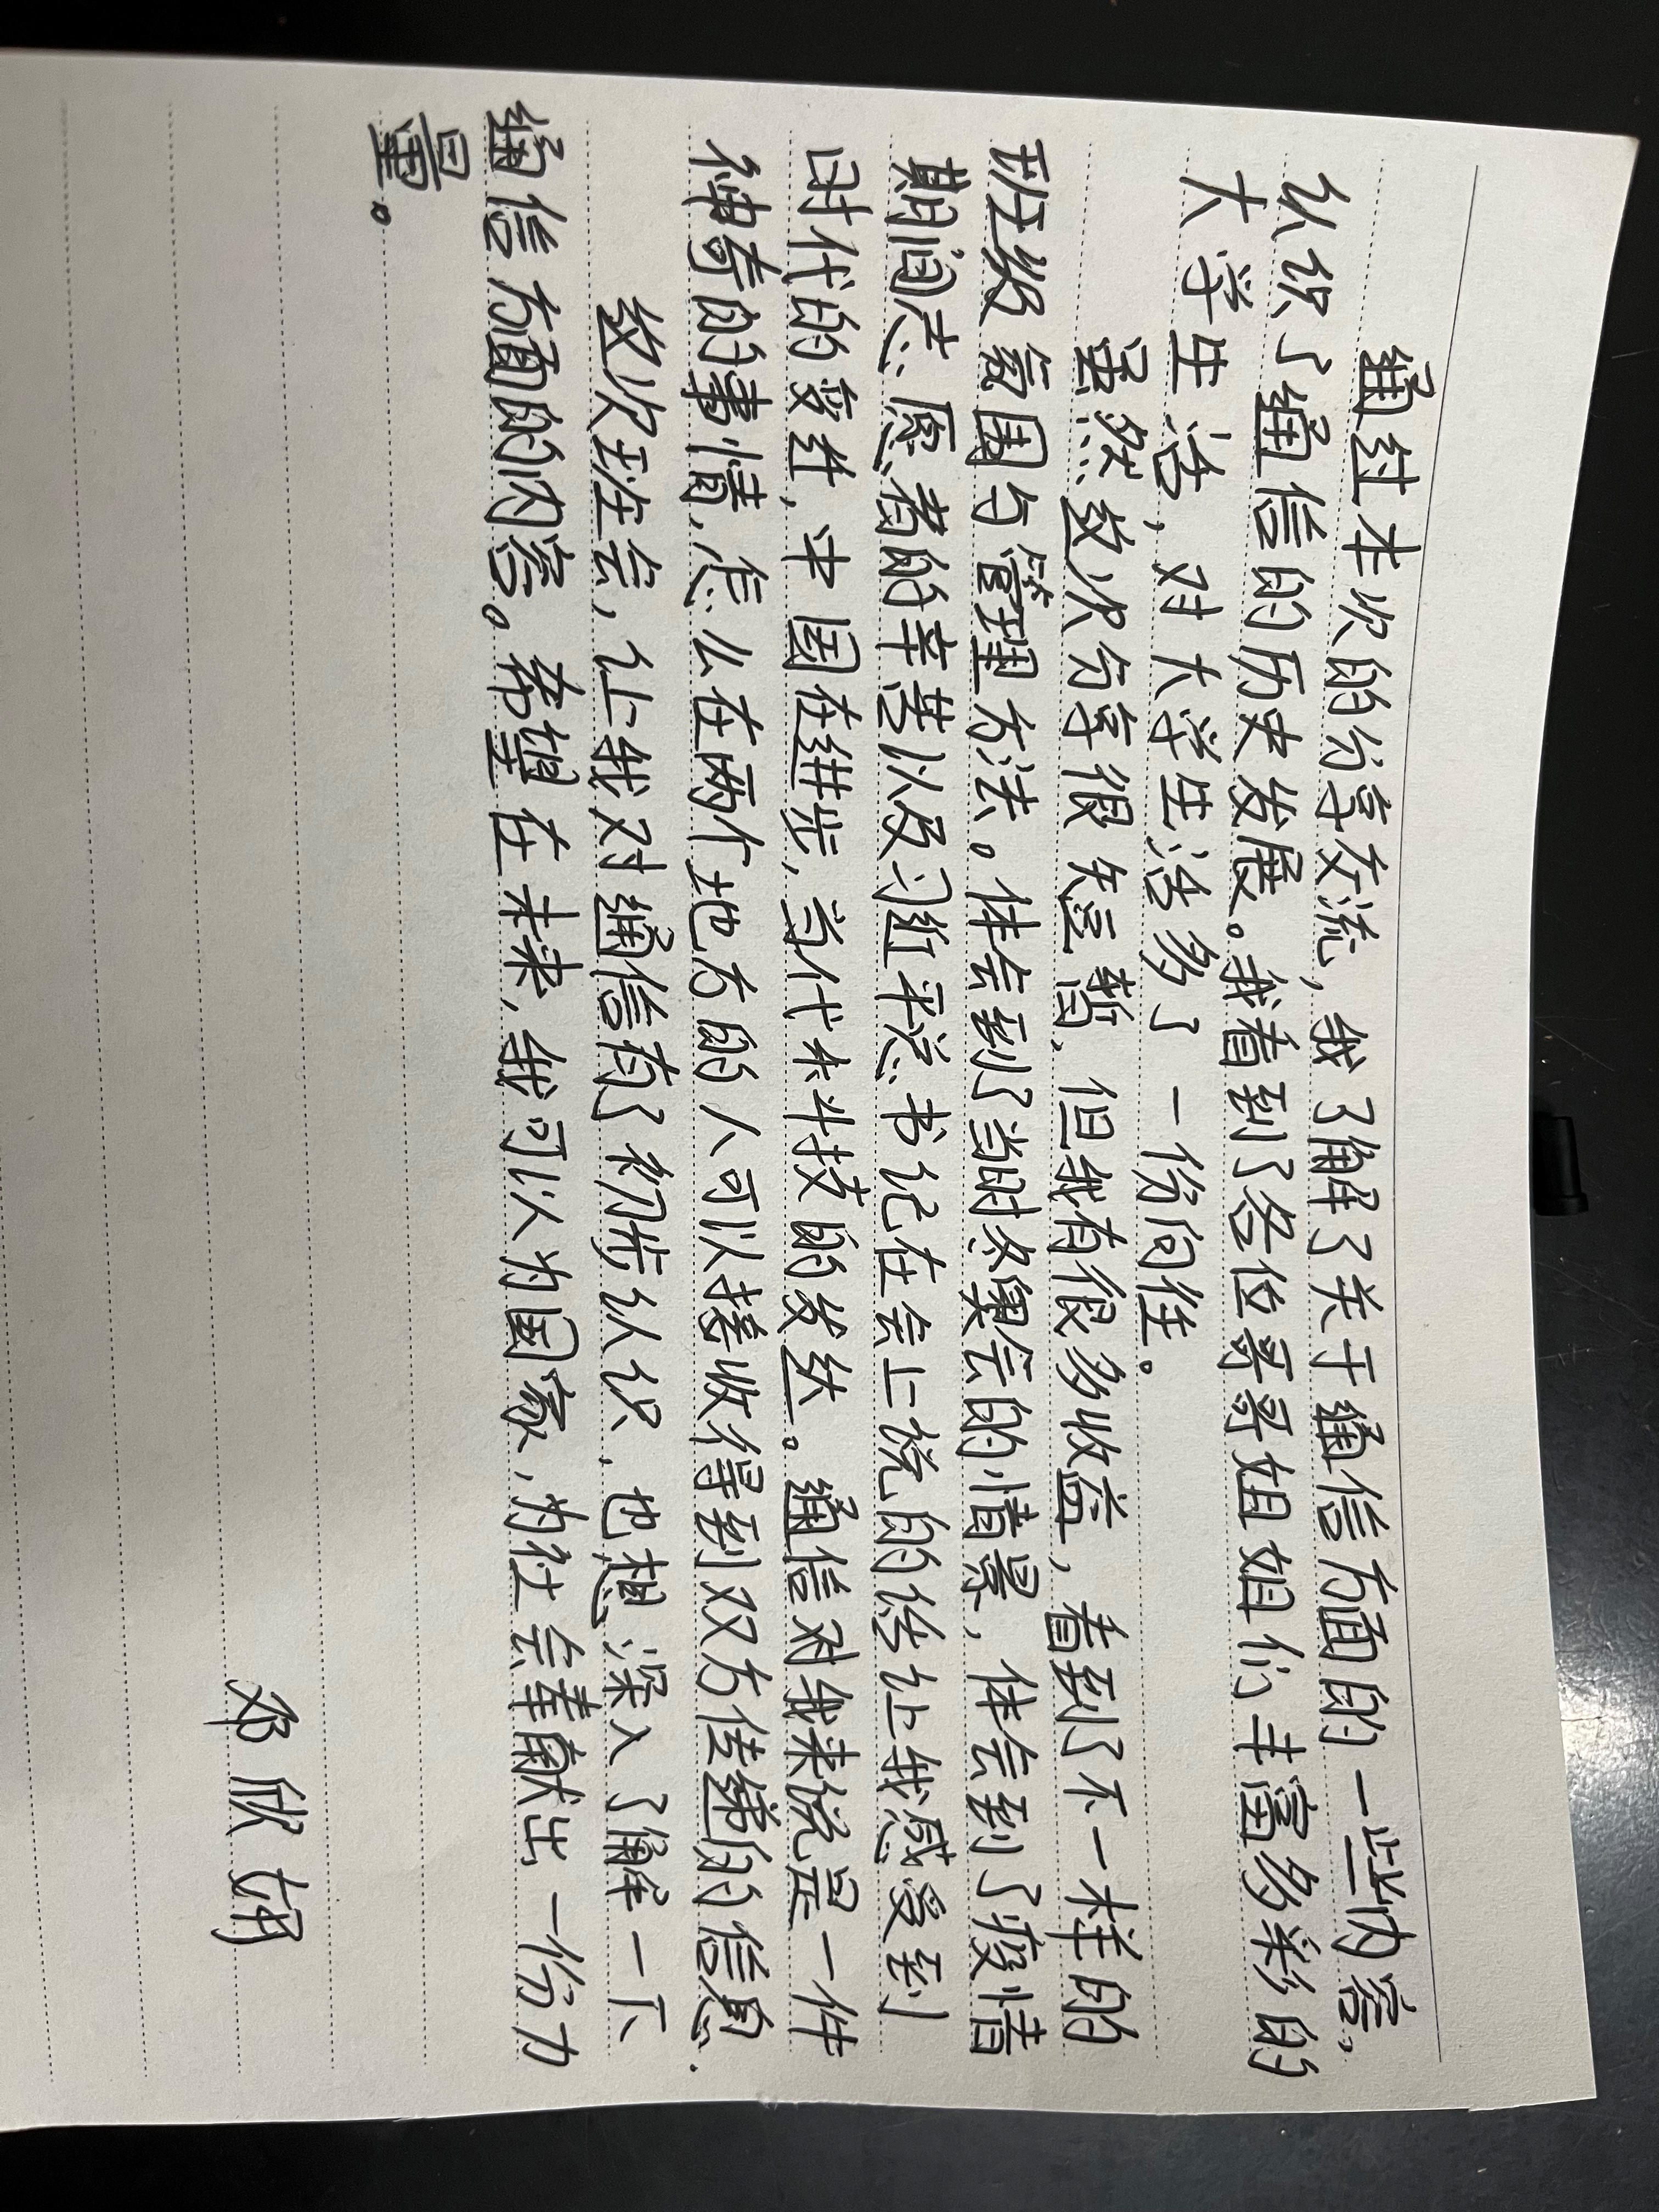 通过本次的分享交流,我了解了关于通信方面的一些内容,
认识了通信的历史发展。我看到了各位哥哥姐姐们丰富多彩的
大学生活,对大学生活多了一份向往。
虽然这次分享很短暂,但我有很多收益,看到了不一样的
班级氛围与管理方法。体会到了当时冬奥会的情景,体会到了疫情
期间志愿者的辛苦以及习近平总书记在会上说的话让我感受到
时代的变迁,中国在进步,当代科技的发达。通信对我来说是一件
神奇的事情,怎么在两个地方的人可以接收得到双方传递的信息.
这次班会,让我对通信有了初步认识,也想深入了解一下
通信方面的内容。希望在未来,我可以为国家,为社会奉献出一份力
量。
邓欣妍